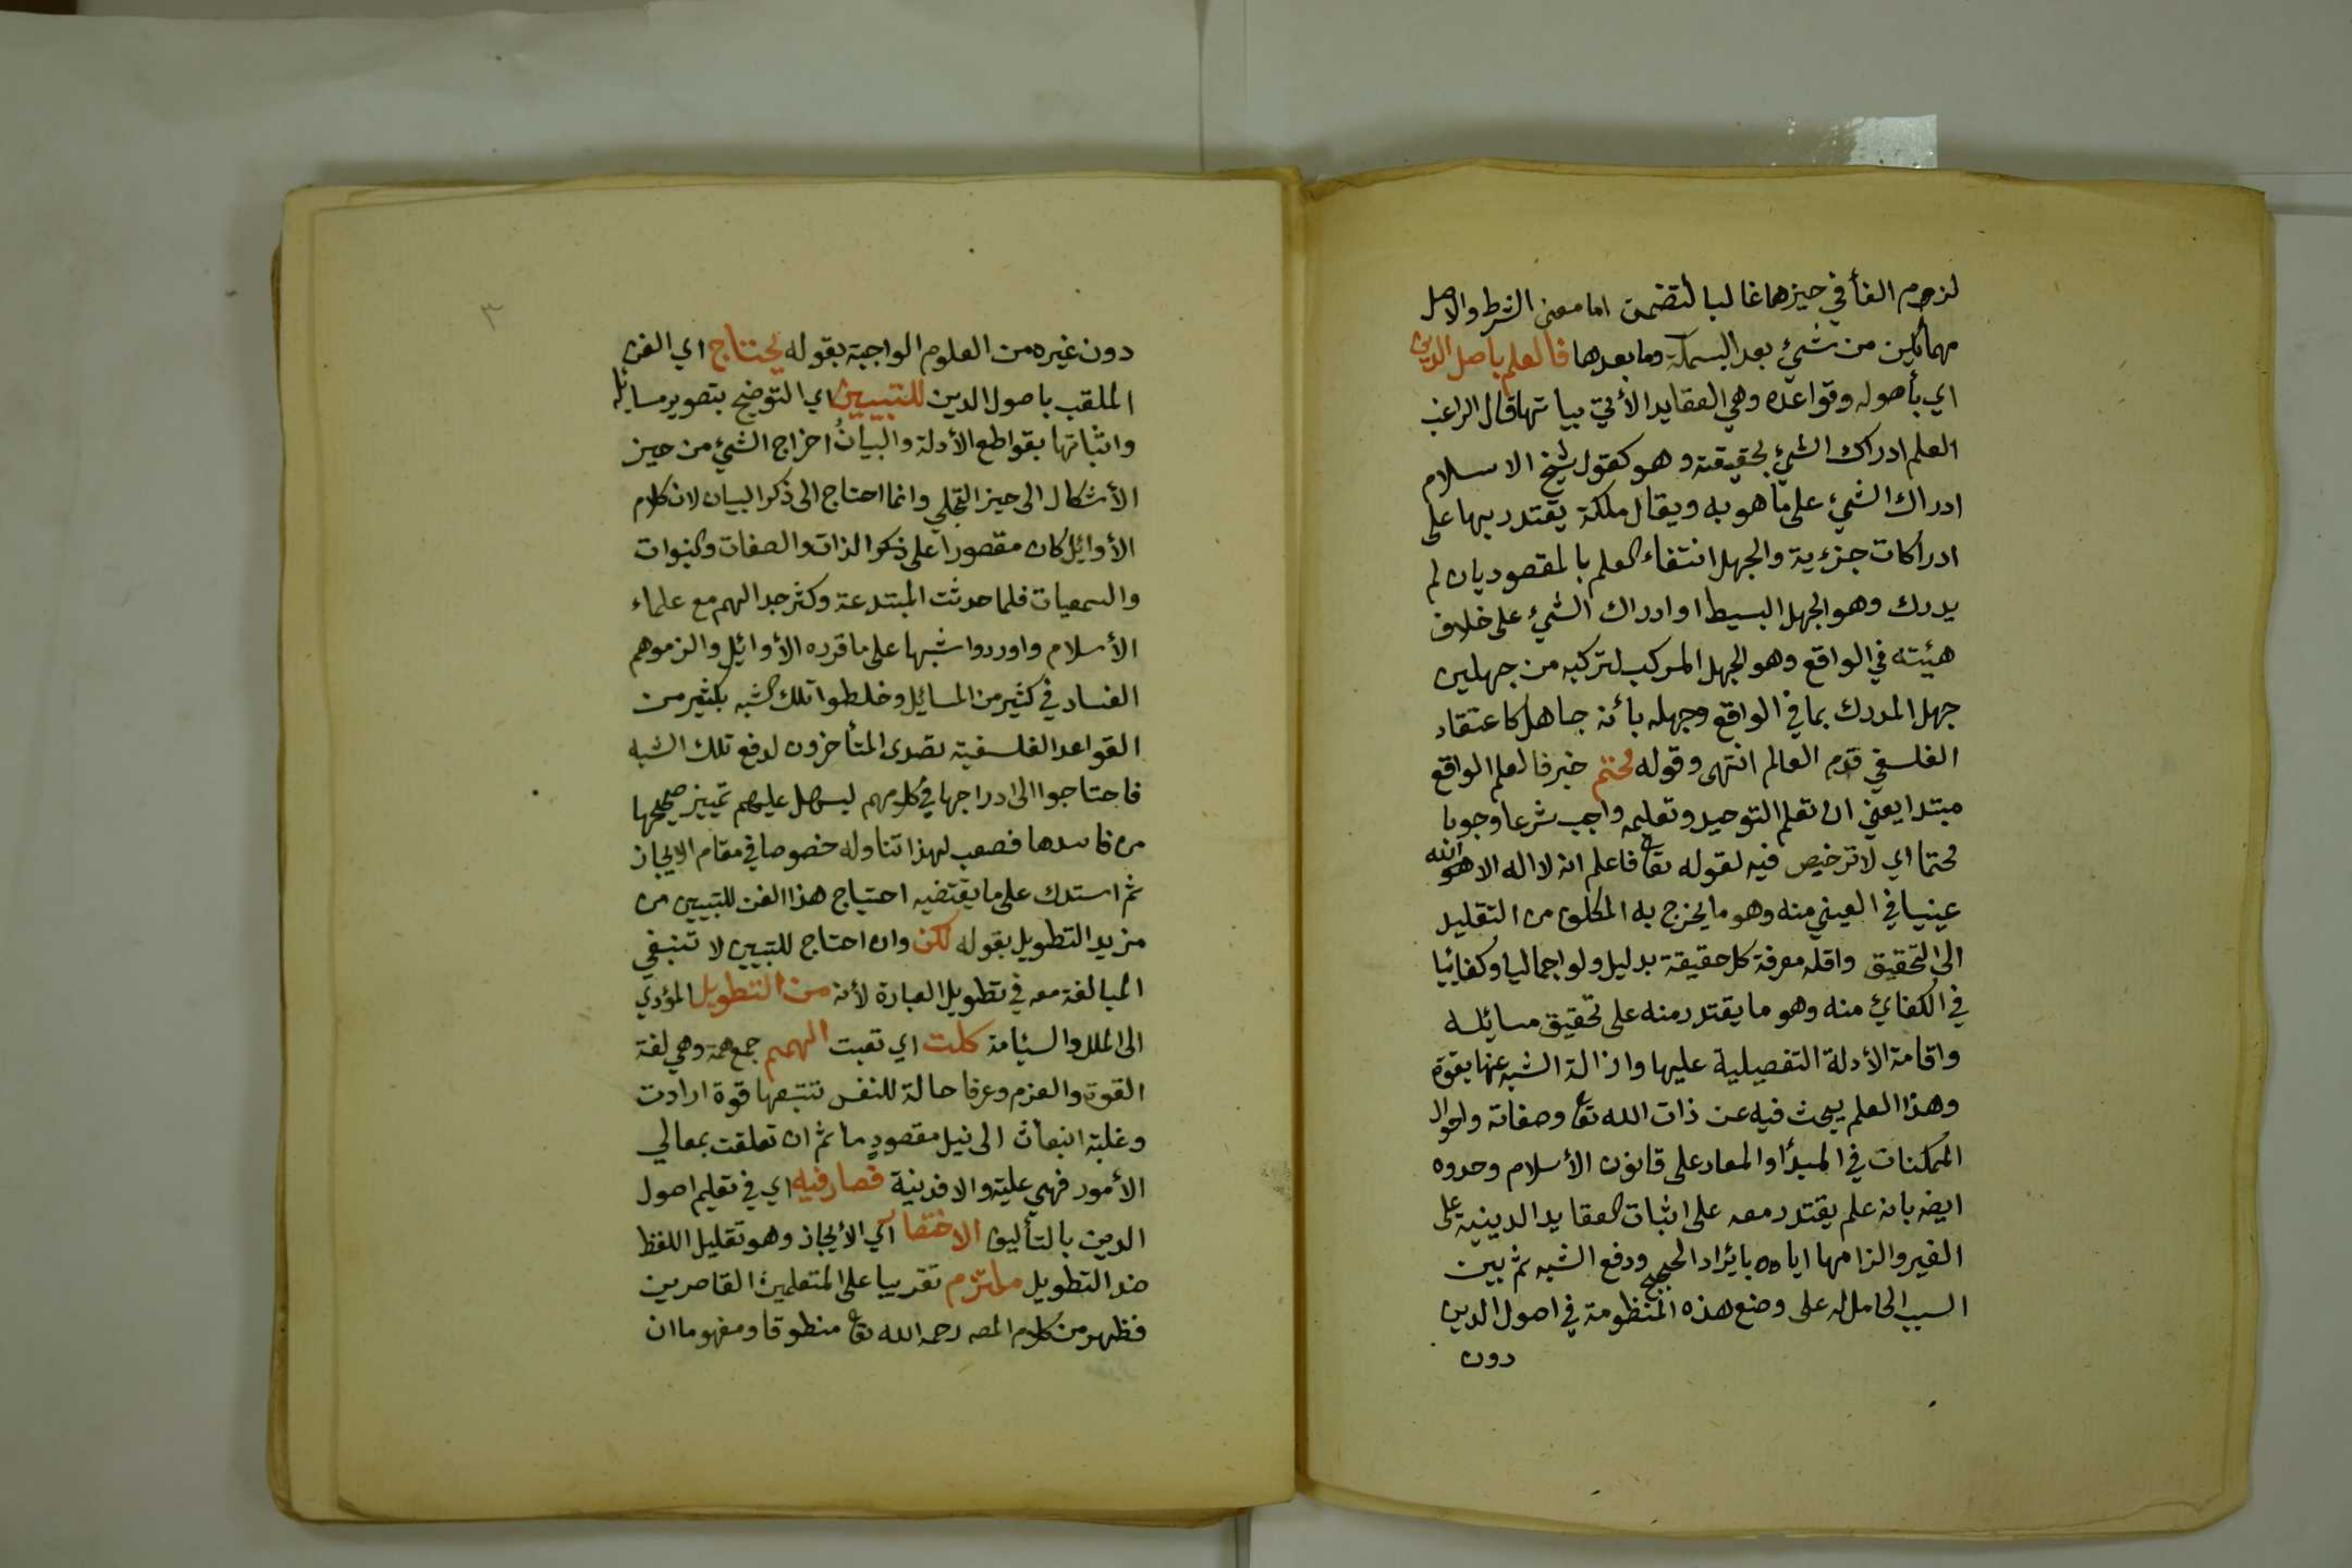 لزوم الفأ في حيزها غالبا لتضمن اما معنى الشرط والاصل
مهما يكن من شيء بعد البسملة وما بعدها فالعلم باصل الدين
اي بأصوله وقواعده وهي العقايد الأتي بيانها قال الراغب
العلم ادراك الشيء بحقيقته وهو كقول شيخ الاسلام
ادراك الشيء على ما هو به ويقال ملكة يقتدر بها على
ادراكات جزءية والجهل انتفاء العلم بالمقصود بان لم
يدرك وهو الجهل البسيط او ادراك الشيء على خلاف
هيئته في الواقع وهو الجهل المركب لتركبه من جهلين
جهل المدرك بما في الواقع وجهله بأنه جاهل كاعتقاد
الفلسفي قدم العالم انتهى وقوله محتم خبر فالعلم الواقع
مبتدا يعني ان تعلم التوحيد وتعليمه واجب شرعا وجوبا
محتما اي لا ترخيص فيه لقوله تعا فاعلم انه لا اله الا هو الله
عينيا في العيني منه وهو ما يخرج به المكلف من التقليد
الى التحقيق واقله معرفة كل حقيقة بدليل ولو اجماليا وكفائيا
في الكفائي منه وهو ما يقتدر منه على تحقيق مسائله
واقامة الأدلة التفصيلية عليها وازالة الشبه عنها بقوة
وهذا العلم يبحث فيه عن ذات الله تعا وصفاته واحوال
الممكنات في المبدأ والمعاد على قانون الأسلام وحدوه
ايضه بانه علم يقتدر معه على اثبات العقايد الدينية على
الغير والزامها اياه بايراد الحجج ودفع الشبه ثم بين
السبب الحامل له على وضع هذه المنظومة في اصول الدين
دون
٣
دون غيره من العلوم الواجبة بقوله يحتاج اي الفن
الملقب باصول الدين للتبيين اي التوضيح بتصوير مسائله
واثباتها بقواطع الأدلة والبيانُ اخراج الشيء من حيز
الأشكال الى حيز التجلي وانما احتاج الى ذكر البيان لان كلام
الأوائل كان مقصورا على ذكر الذات والصفات والنبوات
والسمعيات فلما حدثت المبتدعة وكثر جدالهم مع علماء
الأسلام واوردوا شبها على ما قرره الأوائل والزموهم
الفساد في كثير من المسائل وخلطوا تلك الشبه بكثير من
القواعد الفلسفية تصدى المتأخرون لدفع تلك الشبه
فاحتاجوا الى ادراجها في كلامهم ليسهل عليهم تمييز صحيحها
من فاسدها فصعب لهذا تناوله خصوصا في مقام الايجاز
ثم استدك على ما يقتضيه احتياج هذا الفن للتبيين من
مزيد التطويل بقوله لكن وان احتاج للتبيين لا تنبغي
المبالغة معه في تطويل العبارة لأنه من التطويل المؤدي
الى الملل والسئامة كلت اي تعبت الهمم جمع همة وهي لغة
القوة والعزم وعرفا حالة للنفس تتبعها قوة ارادت
وغلبة انبعاث الى نيل مقصودٍ ما ثم ان تعلقت بمعالي
الأمور فهي علية والا فدنية فصار فيه اي في تعليم اصول
الدين بالتأليف الاختصار اي الأيجاز وهو تقليل اللفظ
ضد التطويل ملتزم تقريبا على المتعلمين القاصرين
فظهر من كلام المصه رحمه الله تعا منطوقا ومفهوما ان